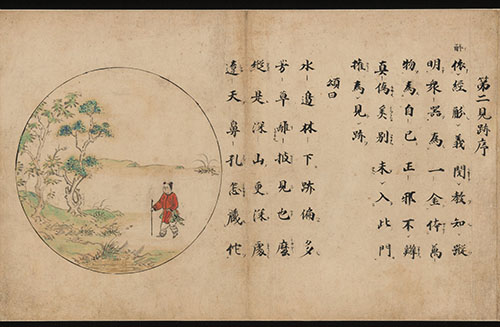 第二見跡序
依經解義閱教知蹤
明衆器為一金体萬
物為自己正邪不辨
真偽奚別未入此門
権為見跡
頌曰
水邊林下跡偏多
芳草離披見也麼
縱是深山更深處
遼天鼻孔怎藏佗